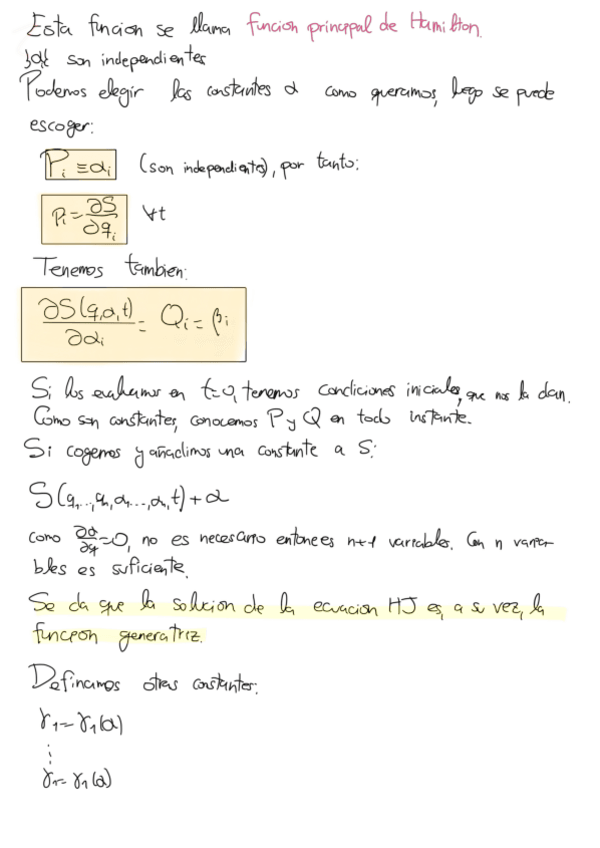 Esta funcion se llama funcion principal de Hamilton.
}α{ son independientes
Podemos elegir las constantes α como queramos, luego se puede
escoger:
Pᵢ ≡ αᵢ (son independientes), por tanto:
Pᵢ = ∂S/∂qᵢ ∀t
Tenemos tambien:
∂S(q,α,t)/∂αᵢ = Qᵢ = βᵢ
Si los evaluamos en t=0, tenemos condiciones iniciales, que nos la dan.
Como son constantes, conocemos P y Q en todo instante.
Si cogemos y añadimos una constante a S:
S(q₁...,qₙ,α₁...,αₙ,t)+α
como ∂α/∂q=0, no es necesario entonces n+1 variables. Con n varia-
bles es suficiente.
Se da que la solucion de la ecuacion HJ es, a su vez, la
funcion generatriz.
Definamos otras constantes:
γ₁=γ₁(α)
⋮
γₙ=γ₁(α)